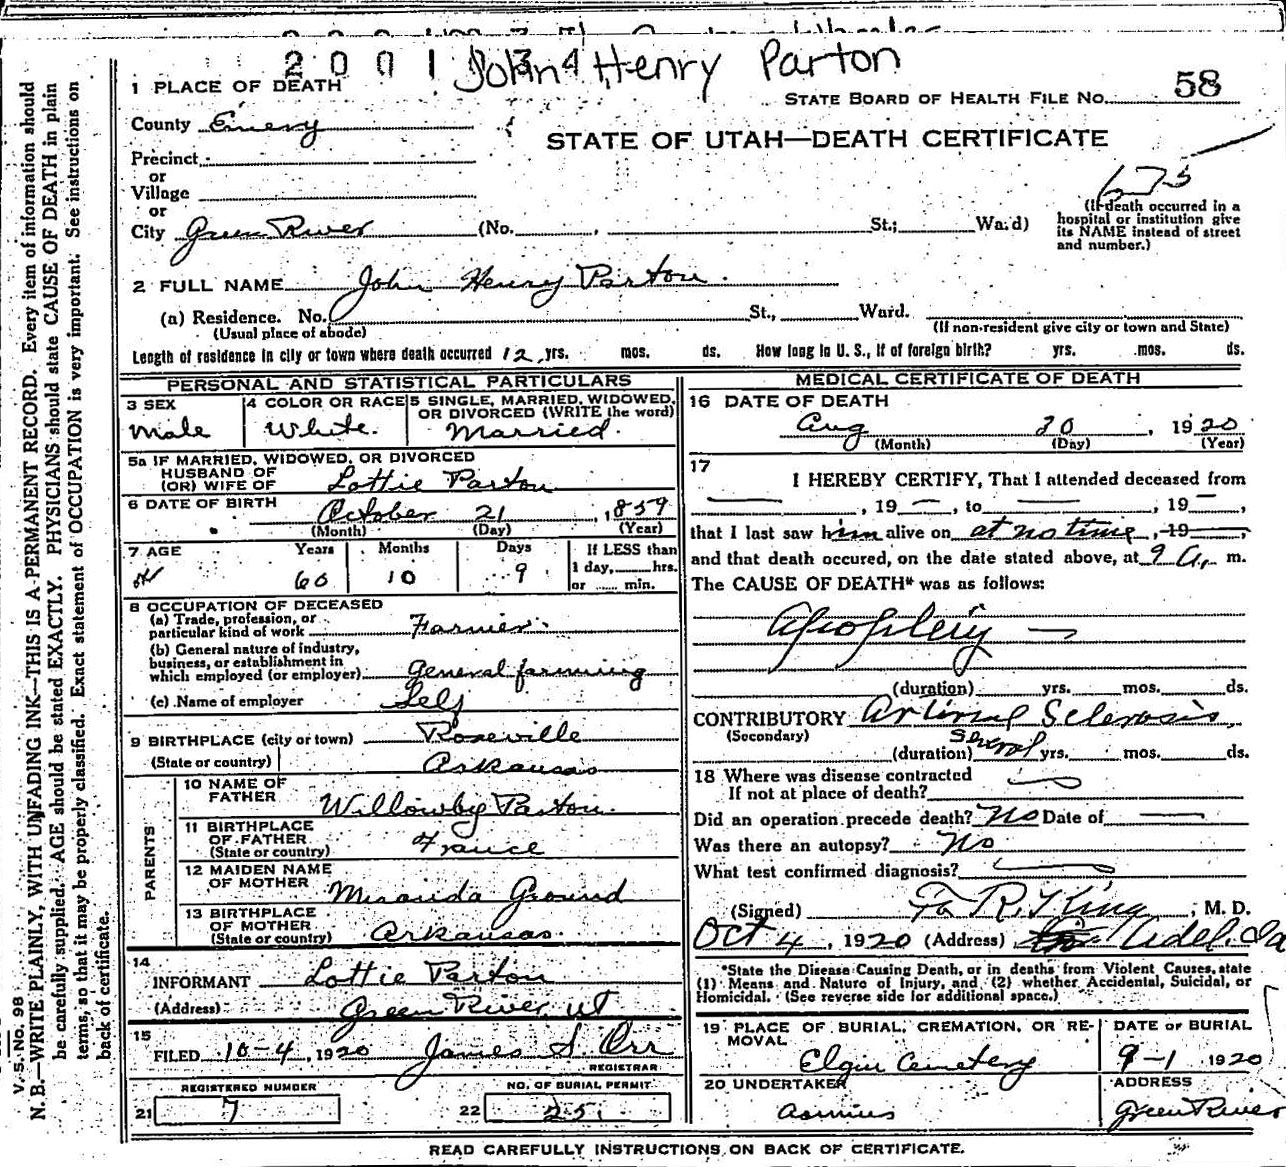 2 0 0 1 3 4
John Henry Parton
1 PLACE OF DEATH
STATE BOARD OF HEALTH FILE No. 58
County Emery
STATE OF UTAH—DEATH CERTIFICATE
Precinct
or
Village
or
675
(If death occurred in a
hospital or institution give
its NAME instead of street
and number.)
City Green River (No. , St.; Ward)
2 FULL NAME John Henry Parton.
(a) Residence. No. St., Ward.
(Usual place of abode) (If non-resident give city or town and State)
Length of residence in city or town where death occurred 12 yrs. mos. ds. How long in U. S., if of foreign birth? yrs. mos. ds.
PERSONAL AND STATISTICAL PARTICULARS
3 SEX
Male
4 COLOR OR RACE
White.
5 SINGLE, MARRIED, WIDOWED,
OR DIVORCED (WRITE the word)
Married.
5a IF MARRIED, WIDOWED, OR DIVORCED
HUSBAND OF
(OR) WIFE OF Lottie Parton
6 DATE OF BIRTH
October 21, 1859
(Month) (Day) (Year)
7 AGE Years Months Days
60 10 9
If LESS than
1 day, hrs.
or min.
8 OCCUPATION OF DECEASED
(a) Trade, profession, or
particular kind of work Farmer.
(b) General nature of industry,
business, or establishment in
which employed (or employer) General farming
(c) Name of employer Self
9 BIRTHPLACE (city or town) Roseville
(State or country) Arkansas
PARENTS
10 NAME OF
FATHER Willowby Parton.
11 BIRTHPLACE
OF FATHER
(State or country) France
12 MAIDEN NAME
OF MOTHER Miranda Ground
13 BIRTHPLACE
OF MOTHER
(State or country) Arkansas.
14
INFORMANT Lottie Parton
(Address) Green River, Ut
15
FILED 10-4, 1920 James S. Orr
REGISTRAR
REGISTERED NUMBER NO. OF BURIAL PERMIT
21 7 22 25
MEDICAL CERTIFICATE OF DEATH
16 DATE OF DEATH
Aug 30, 1920
(Month) (Day) (Year)
17
I HEREBY CERTIFY, That I attended deceased from
, 19 — , to — , 19 — ,
that I last saw him alive on at no time, 19 ,
and that death occured, on the date stated above, at 9 A. m.
The CAUSE OF DEATH* was as follows:
Apoplexy —
(duration) yrs. mos. ds.
CONTRIBUTORY Arterial Sclerosis
(Secondary)
(duration) Several yrs. mos. ds.
18 Where was disease contracted
If not at place of death?
Did an operation precede death? No Date of —
Was there an autopsy? No
What test confirmed diagnosis?
(Signed) R. King, M. D.
Oct 4, 1920 (Address)
*State the Disease Causing Death, or in deaths from Violent Causes, state
(1) Means and Nature of Injury, and (2) whether Accidental, Suicidal, or
Homicidal. (See reverse side for additional space.)
19 PLACE OF BURIAL, CREMATION, OR RE-
MOVAL
Elgin Cemetery
DATE OF BURIAL
9-1 1920
20 UNDERTAKER
ADDRESS
Green River
READ CAREFULLY INSTRUCTIONS ON BACK OF CERTIFICATE.
V. S. No. 98
N. B.—WRITE PLAINLY, WITH UNFADING INK—THIS IS A PERMANENT RECORD. Every item of information should
be carefully supplied. AGE should be stated EXACTLY. PHYSICIANS should state CAUSE OF DEATH in plain
terms, so that it may be properly classified. Exact statement of OCCUPATION is very important. See instructions on
back of certificate.